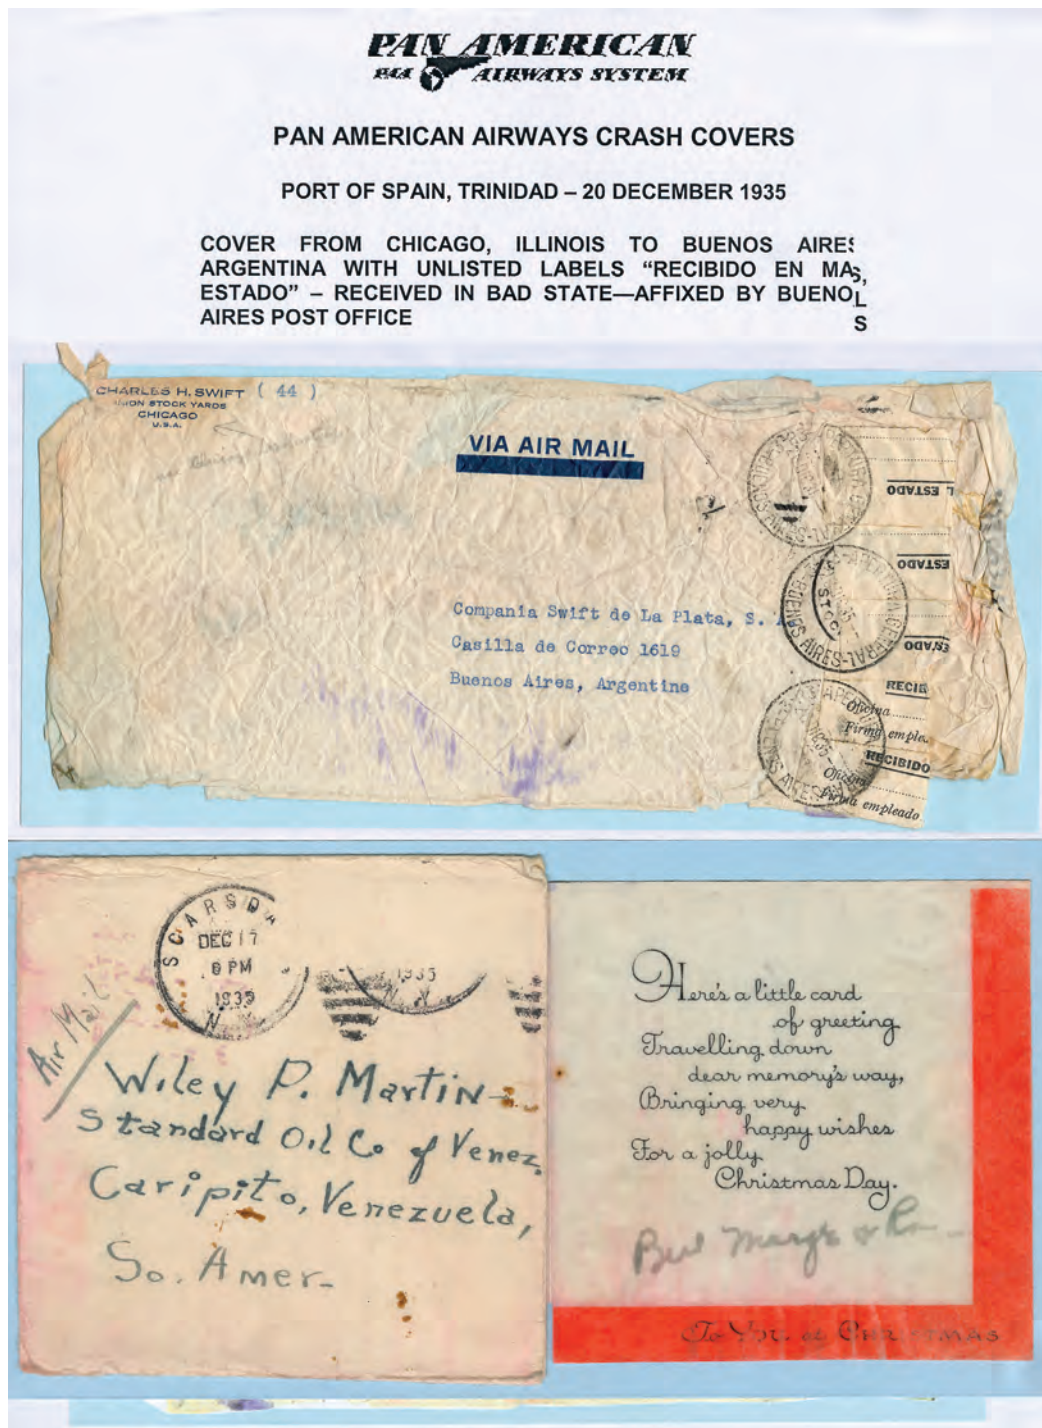 PAN AMERICAN
PAA AIRWAYS SYSTEM
PAN AMERICAN AIRWAYS CRASH COVERS
PORT OF SPAIN, TRINIDAD – 20 DECEMBER 1935
COVER FROM CHICAGO, ILLINOIS TO BUENOS AIRES,
ARGENTINA WITH UNLISTED LABELS “RECIBIDO EN MAL
ESTADO” – RECEIVED IN BAD STATE—AFFIXED BY BUENOS
AIRES POST OFFICE
CHARLES H. SWIFT ( 44 )
UNION STOCK YARDS
CHICAGO
U.S.A.
VIA AIR MAIL
L ESTADO
ESTADO
ESTADO
Compania Swift de La Plata, S.
Casilla de Correo 1619
Buenos Aires, Argentine
APERTURA GENERAL
BUENOS AIRES
RECIB
Oficina
Firma emple..
RECIBIDO
Oficina
Firma empleado
SCARSDA
DEC 17
8 PM
1935
N.Y.
1935
N.Y.
Air Mail
Wiley P. Martin
Standard Oil Co of Venez.
Caripito, Venezuela,
So. Amer-
Here's a little card
of greeting
Travelling down
dear memory's way,
Bringing very
happy wishes
For a jolly
Christmas Day.
To You at Christmas